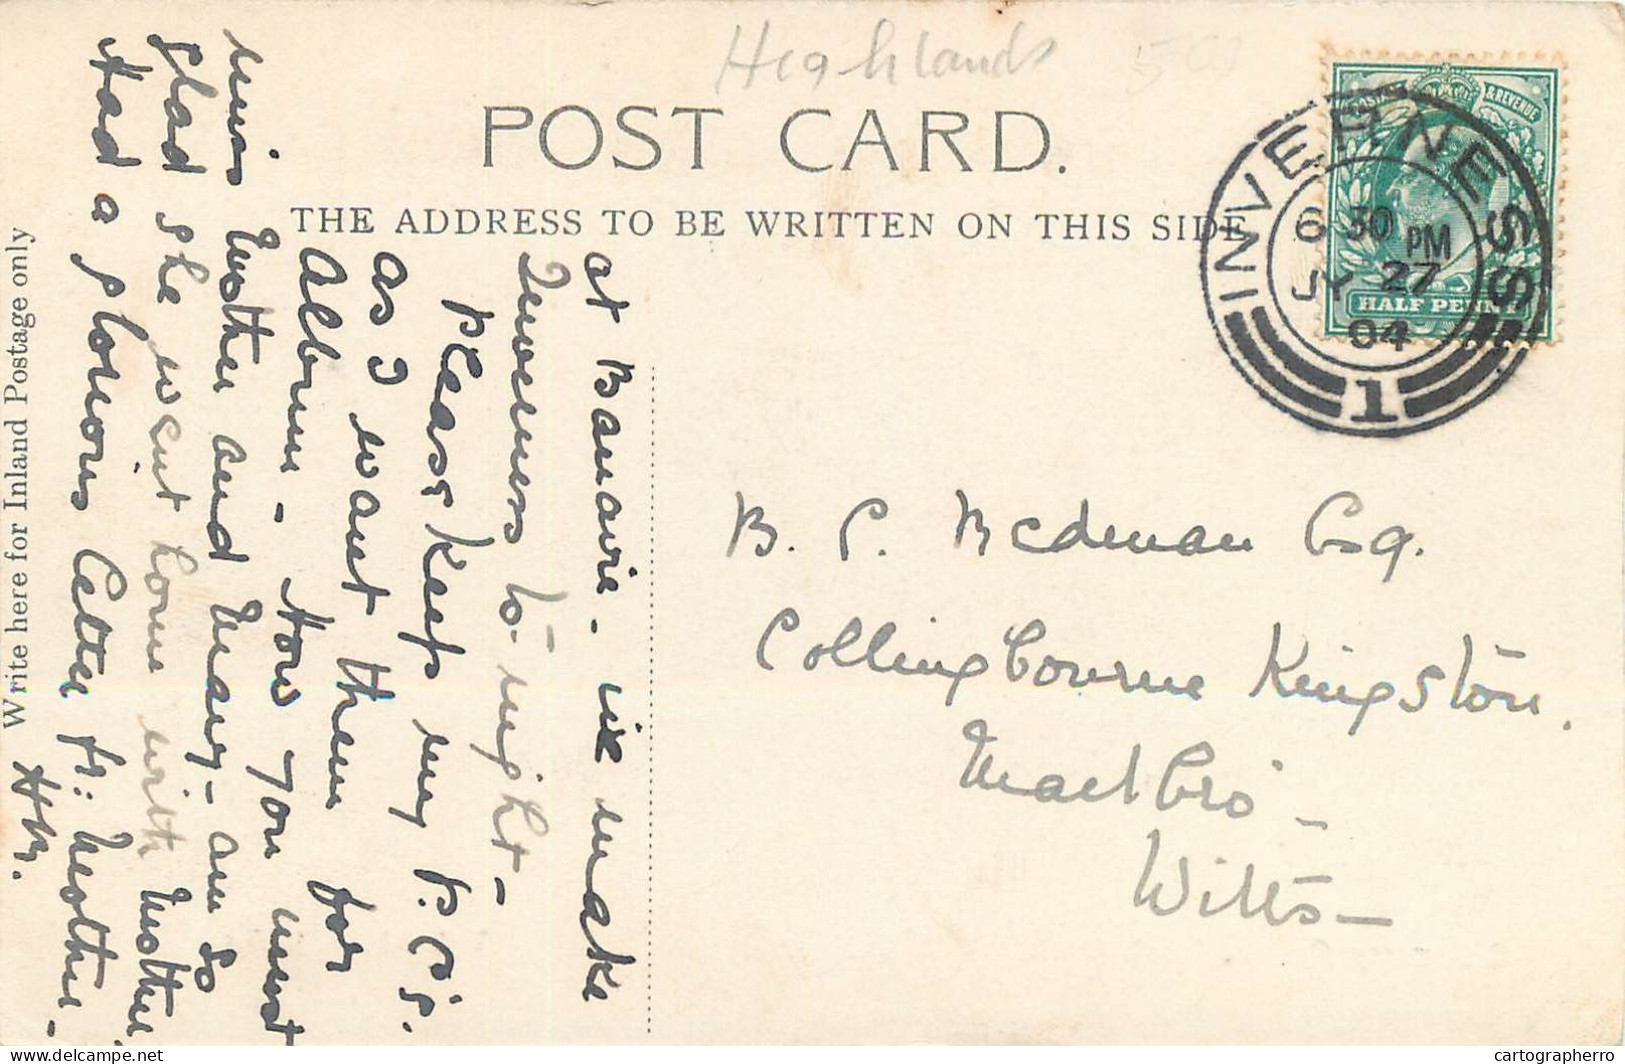 Highlands 50
POST CARD.
THE ADDRESS TO BE WRITTEN ON THIS SIDE
Write here for Inland Postage only
POSTAGE & REVENUE
HALF PENNY
INVERNESS
6 30 PM
JY 27
04
1
at Banavie. we make
Inverness to-night -
Please keep my p. c's.
as I want them for
Album - How you must
miss Mother and Mary - am so
glad she went home with Mother.
Had a glorious letter fr: Mother -
HB.
B. C. Bedman Esq.
Collingbourne Kingston.
Marlbro' -
Wilts -
cartographerro